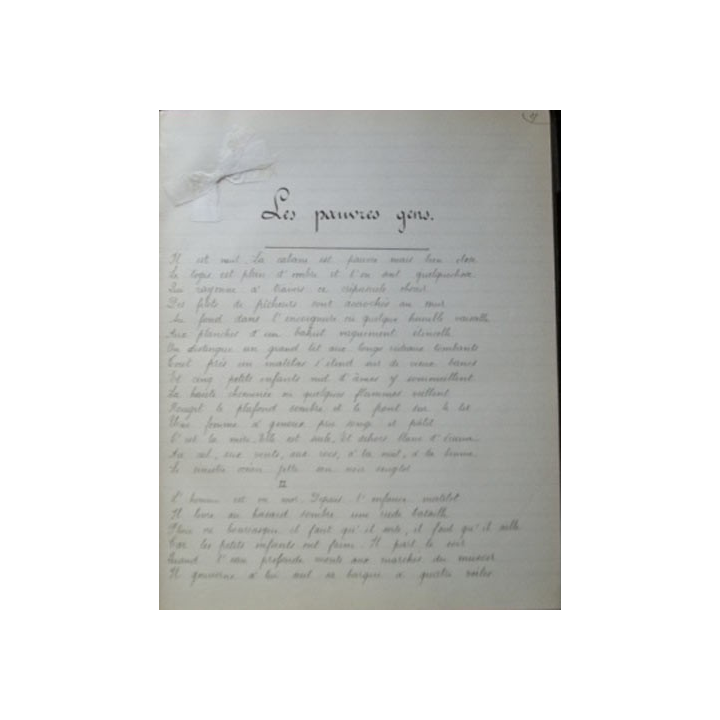 Les pauvres gens.
Il est nuit. La cabane est pauvre mais bien close
Le logis est plein d'ombre et l'on sent quelque chose
Qui rayonne à travers ce crépuscule obscur
Des filets de pêcheurs sont accrochés au mur
Au fond dans l'encoignure où quelque humble vaisselle
Aux planches d'un bahut vaguement étincelle
On distingue un grand lit aux longs rideaux tombants
Tout près un matelas s'étend sur de vieux bancs
Et cinq petits enfants nid d'âmes y sommeillent
La haute cheminée où quelques flammes veillent
Rougit le plafond sombre et le front sur le lit
Une femme à genoux prie songe et pâlit
C'est la mère. Elle est seule. Et dehors blanc d'écume
Au ciel, aux vents, aux rocs, à la nuit, à la brume
Le sinistre océan jette son noir sanglot
II
L'homme est en mer. Depuis l'enfance matelot
Il livre au hasard sombre une rude bataille
Pluie ou bourrasque il faut qu'il sorte, il faut qu'il aille
Car les petits enfants ont faim. Il part le soir
Quand l'eau profonde monte aux marches du musoir
Il gouverne à lui seul sa barque à quatre voiles